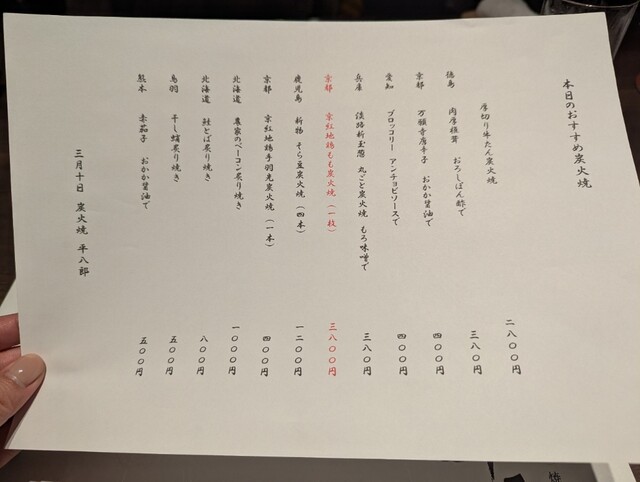 本日のおすすめ炭火焼
厚切り牛たん炭火焼 二八〇〇円
徳島 肉厚椎茸 おろしぽん酢で 三八〇円
京都 万願寺唐辛子 おかか醤油で 四〇〇円
愛知 ブロッコリー アンチョビソースで 四〇〇円
兵庫 淡路新玉葱 丸ごと炭火焼 もろ味噌で 三八〇円
京都 京紅地鶏もも炭火焼(一枚) 三八〇〇円
鹿児島 新物 そら豆炭火焼(四本) 一二〇〇円
京都 京紅地鶏手羽先炭火焼(一本) 四〇〇円
北海道 農家のベーコン炙り焼き 一〇〇〇円
北海道 鮭とば炙り焼き 八〇〇円
鳥羽 干し蛸炙り焼き 五〇〇円
熊本 赤茄子 おかか醤油で 五〇〇円
三月十日 炭火焼 平八郎